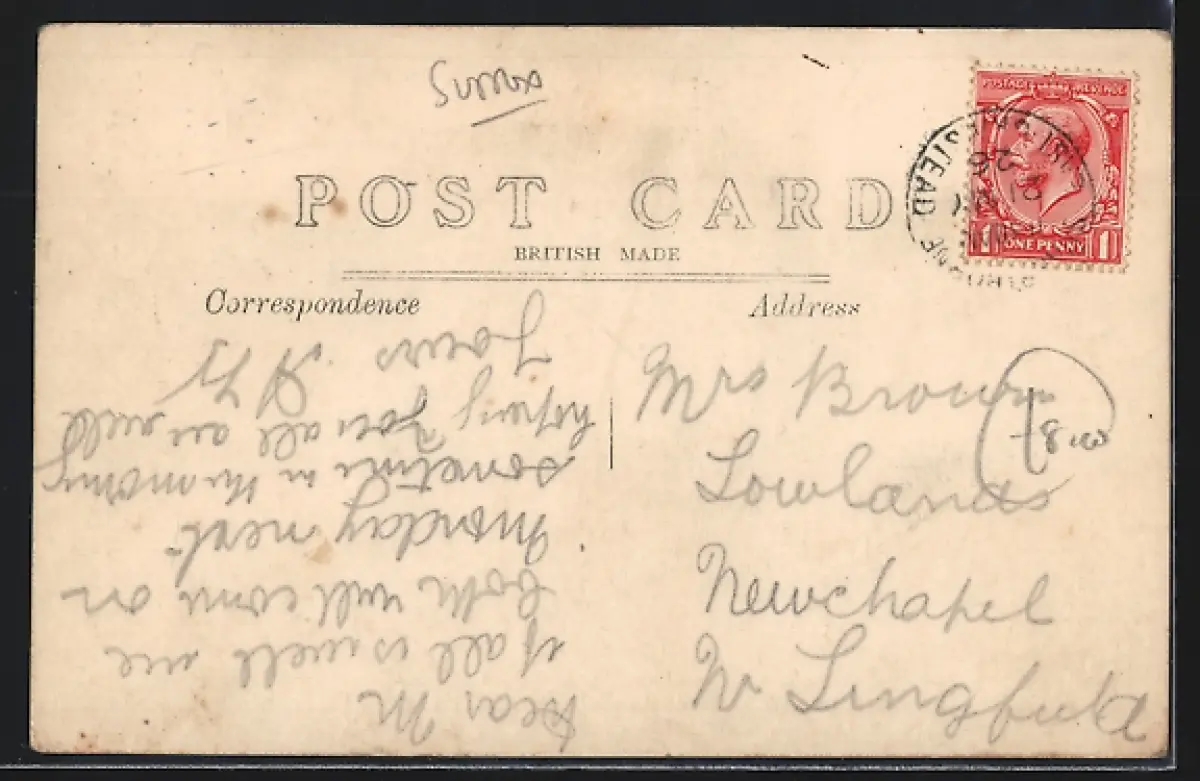 Sussex
POST CARD
BRITISH MADE
Correspondence
Address
POSTAGE REVENUE
1 ONE PENNY 1
STEAD
Mrs Brown
Lowlands
Newchapel
Nr Lingfield
Dear M
if all is well we
both will come on
Monday next
sometime in the morning
hoping you all are well
Yours